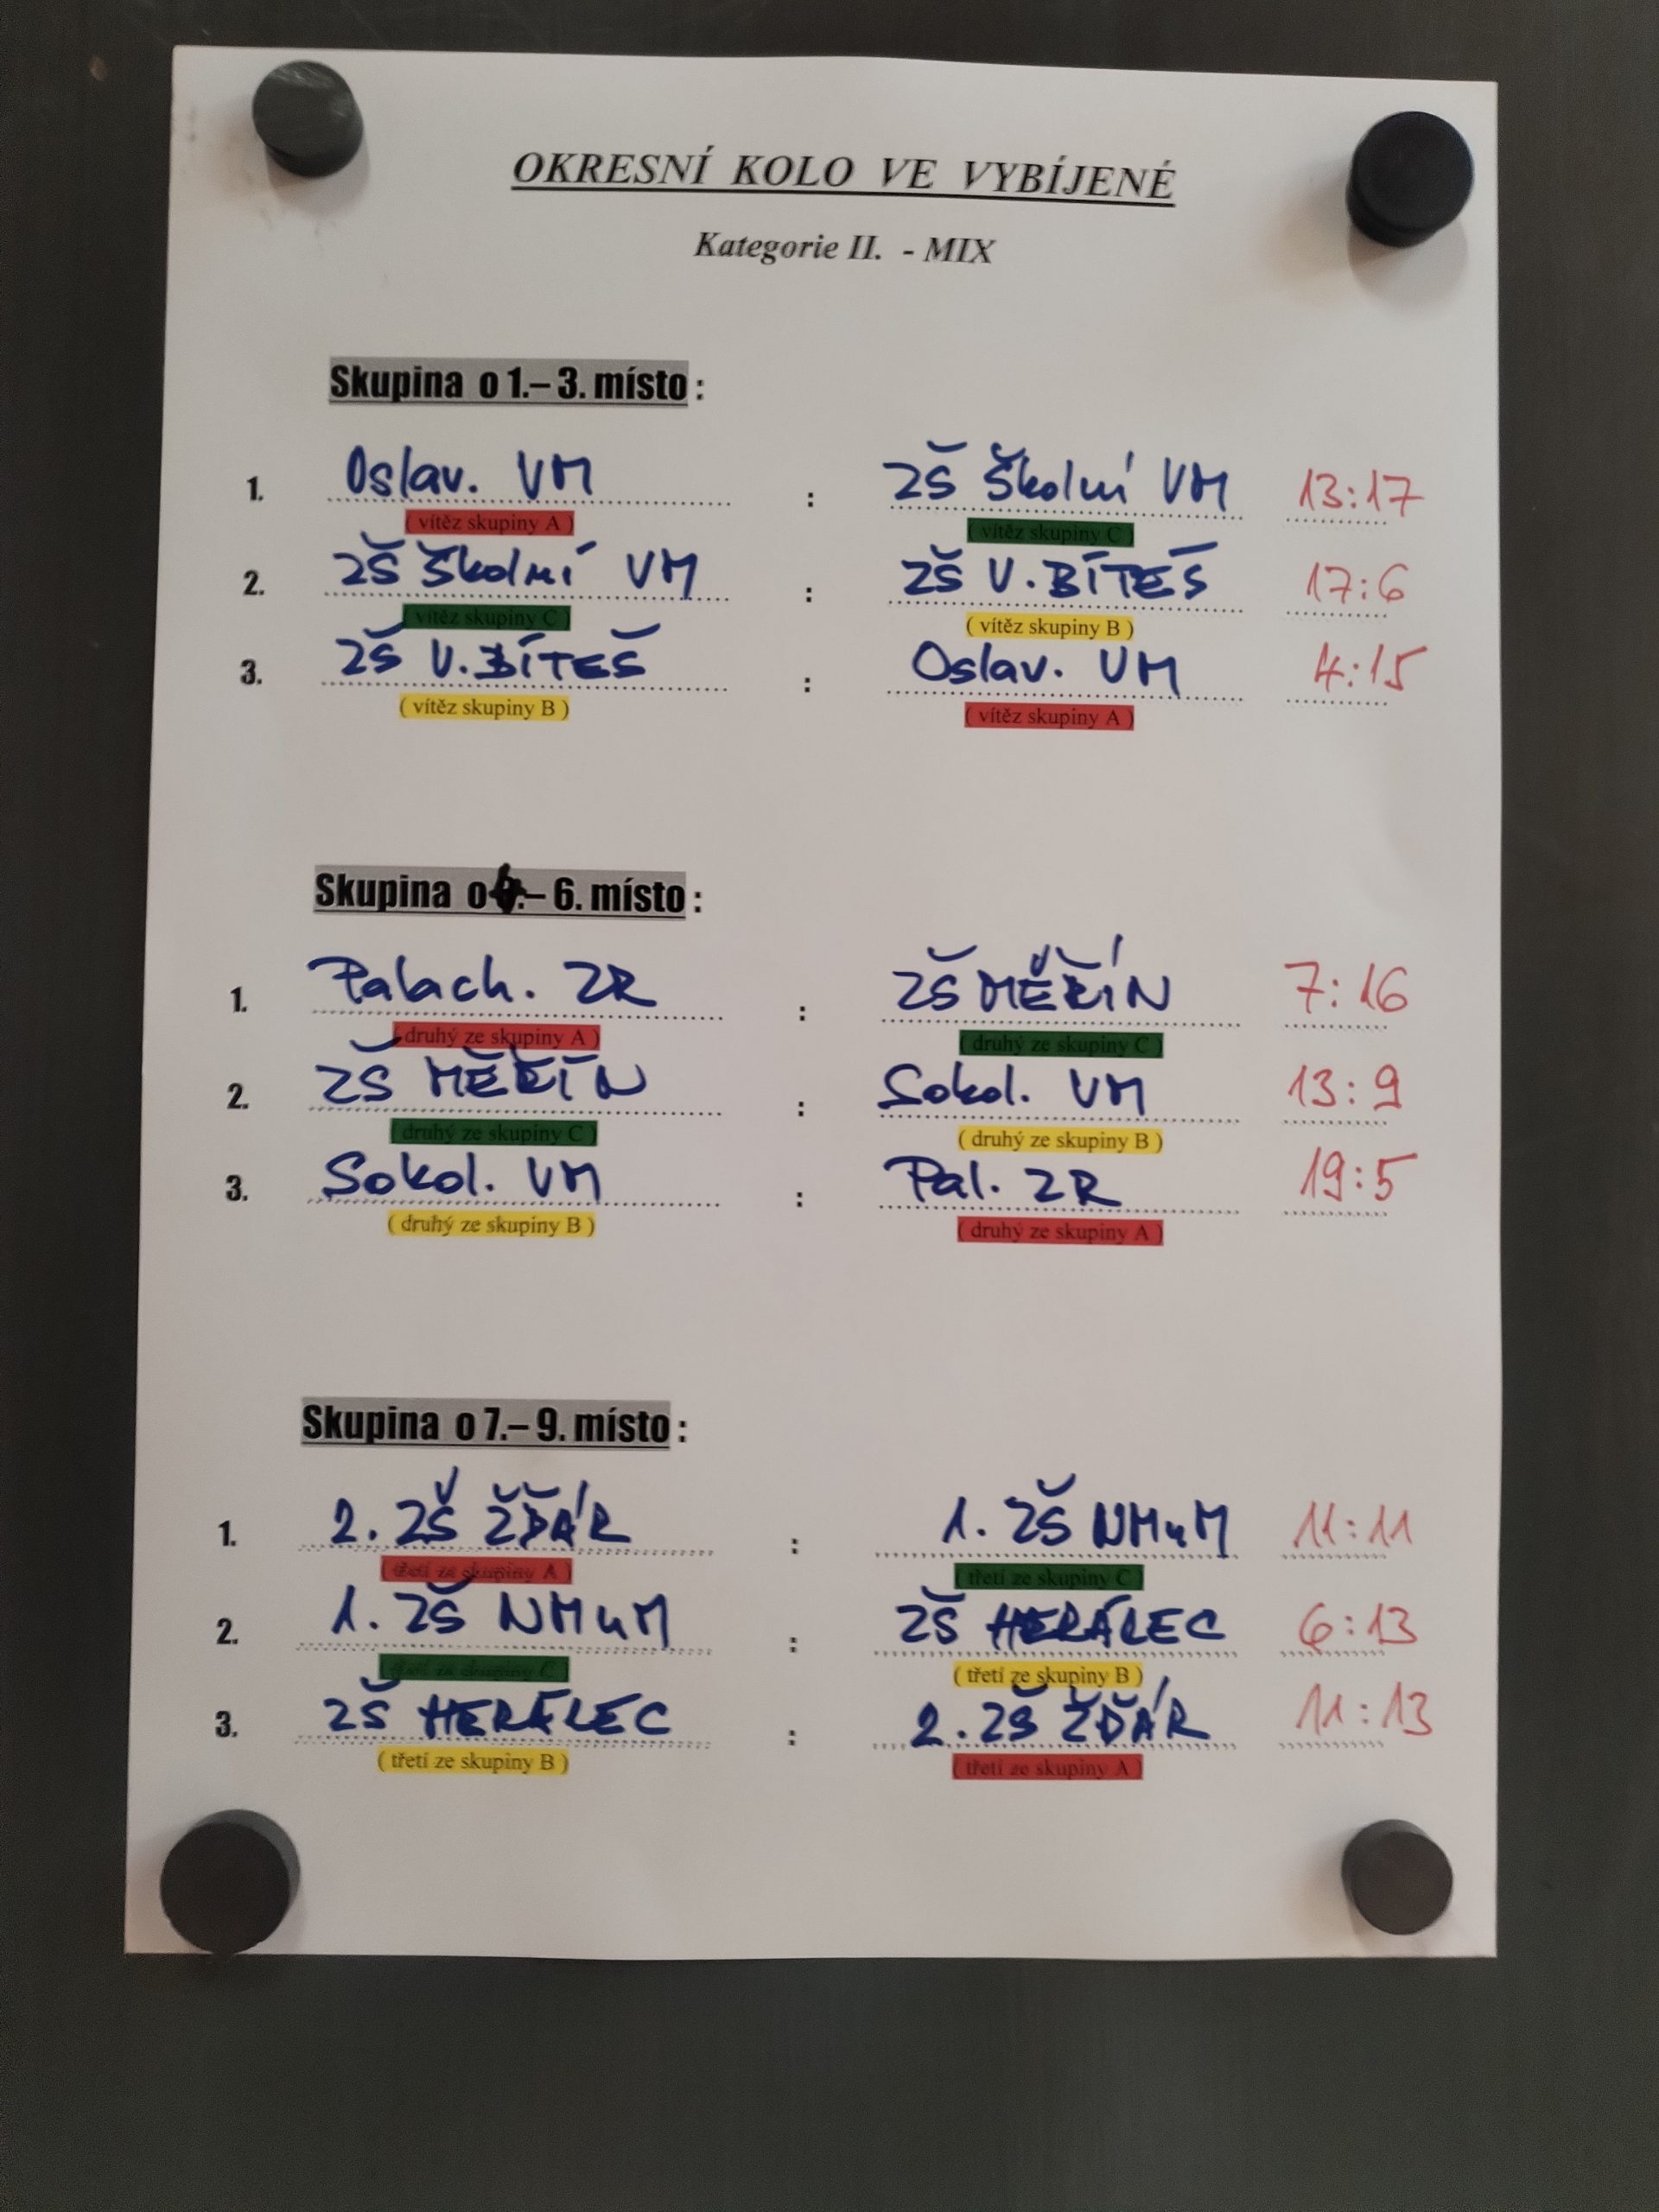 OKRESNÍ KOLO VE VYBÍJENÉ
Kategorie II. - MIX
Skupina o 1.– 3. místo :
1. Oslav. VM : ZŠ Školní VM 13:17
( vítěz skupiny A ) ( vítěz skupiny C )
2. ZŠ Školní VM : ZŠ V. BÍTEŠ 17:6
( vítěz skupiny C ) ( vítěz skupiny B )
3. ZŠ V. BÍTEŠ : Oslav. VM 4:15
( vítěz skupiny B ) ( vítěz skupiny A )
Skupina o 4.– 6. místo :
1. Palach. ZR : ZŠ MĚŘÍN 7:16
( druhý ze skupiny A ) ( druhý ze skupiny C )
2. ZŠ MĚŘÍN : Sokol. VM 13:9
( druhý ze skupiny C ) ( druhý ze skupiny B )
3. Sokol. VM : Pal. ZR 19:5
( druhý ze skupiny B ) ( druhý ze skupiny A )
Skupina o 7.– 9. místo :
1. 2. ZŠ ŽĎÁR : 1. ZŠ NMnM 11:11
( třetí ze skupiny A ) ( třetí ze skupiny C )
2. 1. ZŠ NMnM : ZŠ HERÁLEC 6:13
( třetí ze skupiny C ) ( třetí ze skupiny B )
3. ZŠ HERÁLEC : 2. ZŠ ŽĎÁR 11:13
( třetí ze skupiny B ) ( třetí ze skupiny A )